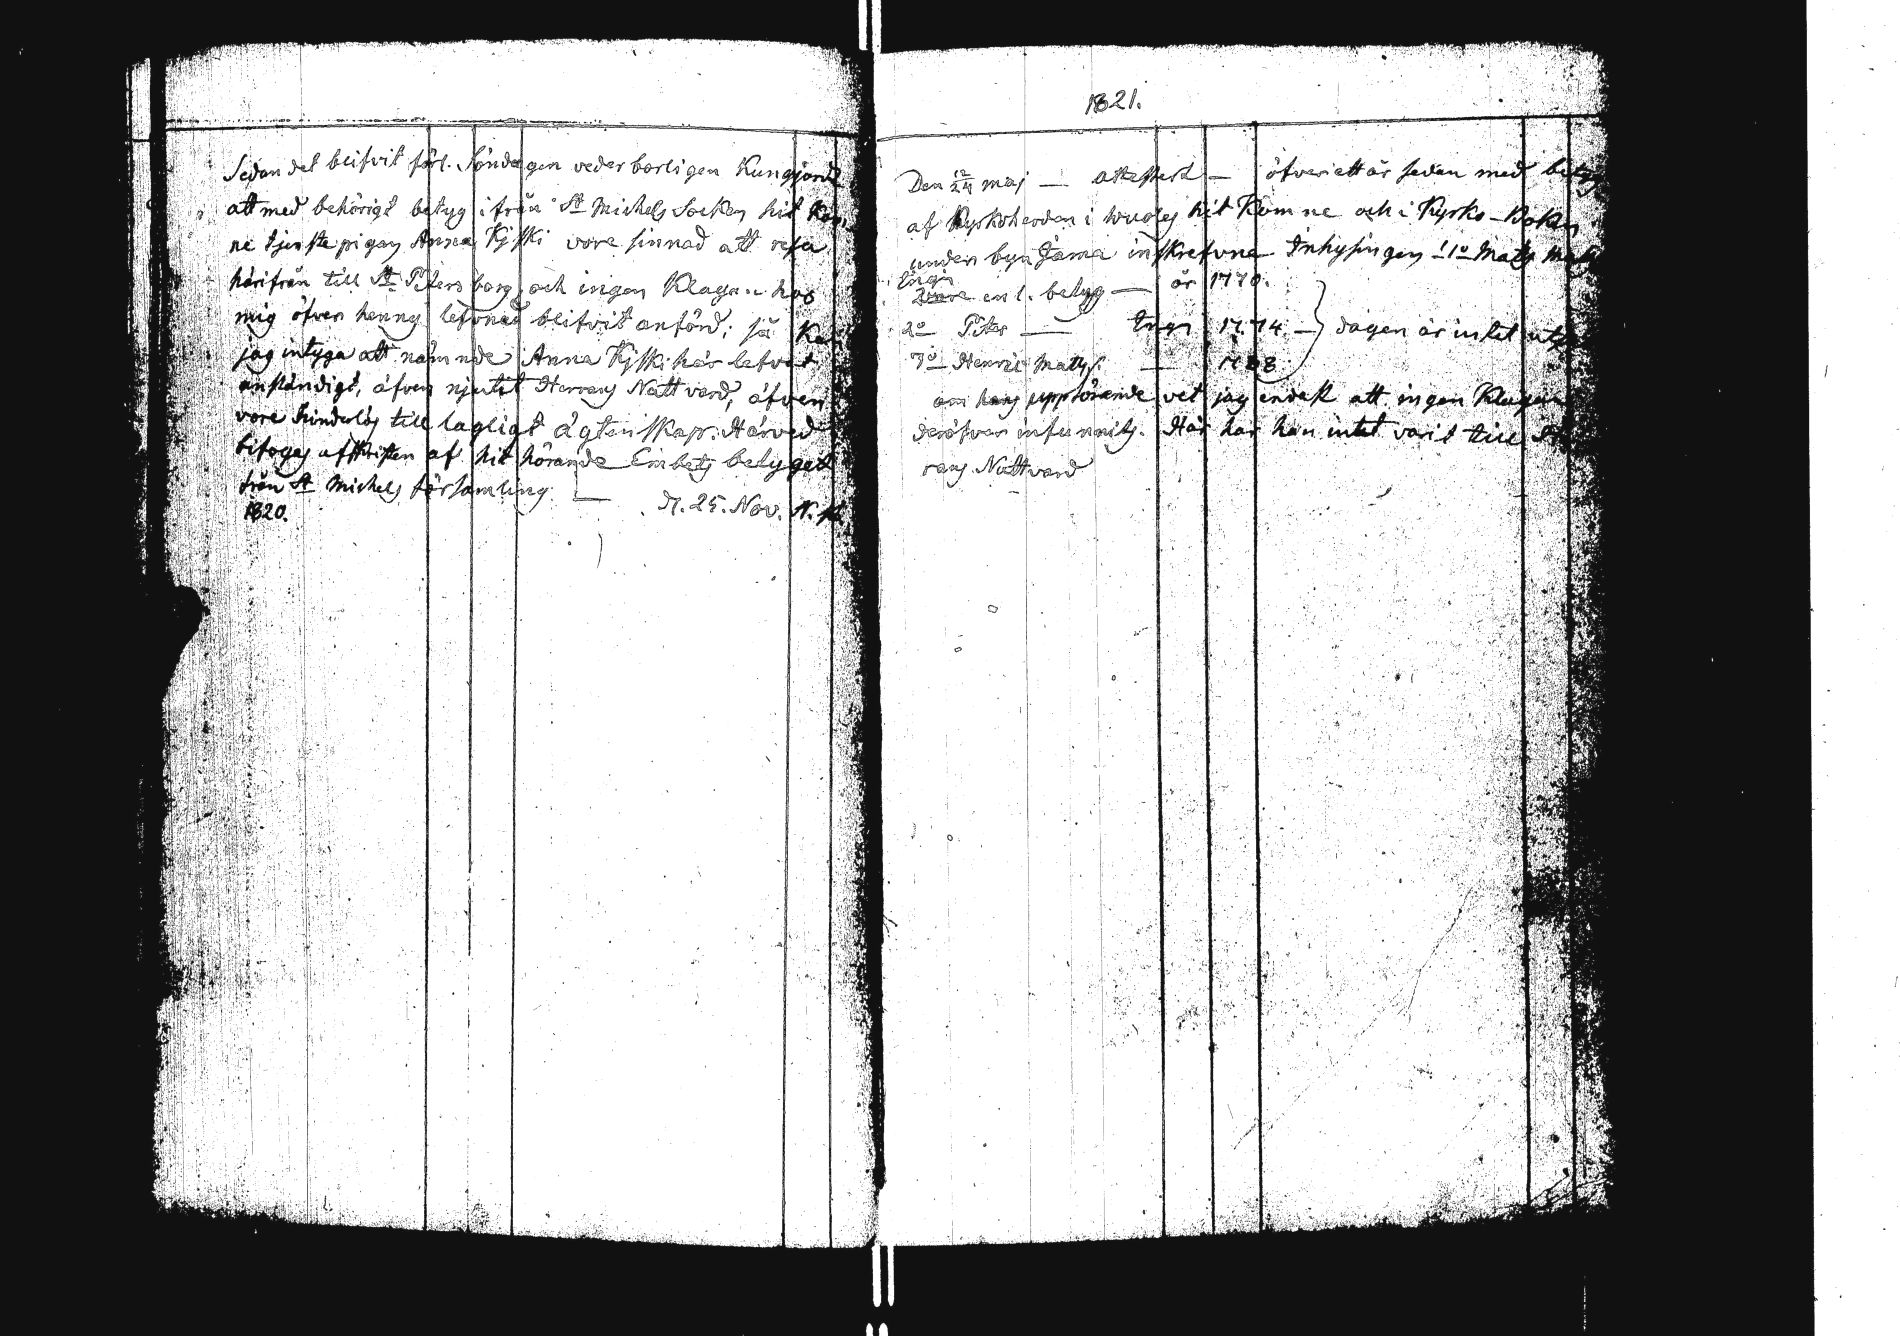 Sedan det blifvit förl. Söndagen vederborligen Kungjordt
att med behörigt betyg ifrån St Michels Socken hit Kom
ne tjenstepigan Anna Kjiski vore sinnad att resa
härifrån till St Petersborg, och ingen Klagan hos
mig öfver hennes lefvnad blifvit anförd; så Kan
jag intyga att nämnde Anna Kjiski här lefvat
anständigt, äfven njutit Herrans Nattvard, äfven
vore hinderlös till lagligt ägtenskap. Härved
bifogas afskriften af hit hörande Embets betyget
från St Michels församling — d. 25. Nov. N. st.
1820.
1821.
Den 12/24 maj — attesterat — öfver ett år sedan med betyg
af Kyrkoherden i hit Komne och i Kyrko-Boken
under byn Jama inskrefvne Inhysingen 1o Mats
enl. betyg — år 1770.
2o Peter — Ingr 1774 — dagen är intet
3o Henric Mats. — 1788
om hans uppförande vet jag endast att ingen Klagan
deröfver infunnits. Här har han intet varit till Her
rans Nattvard